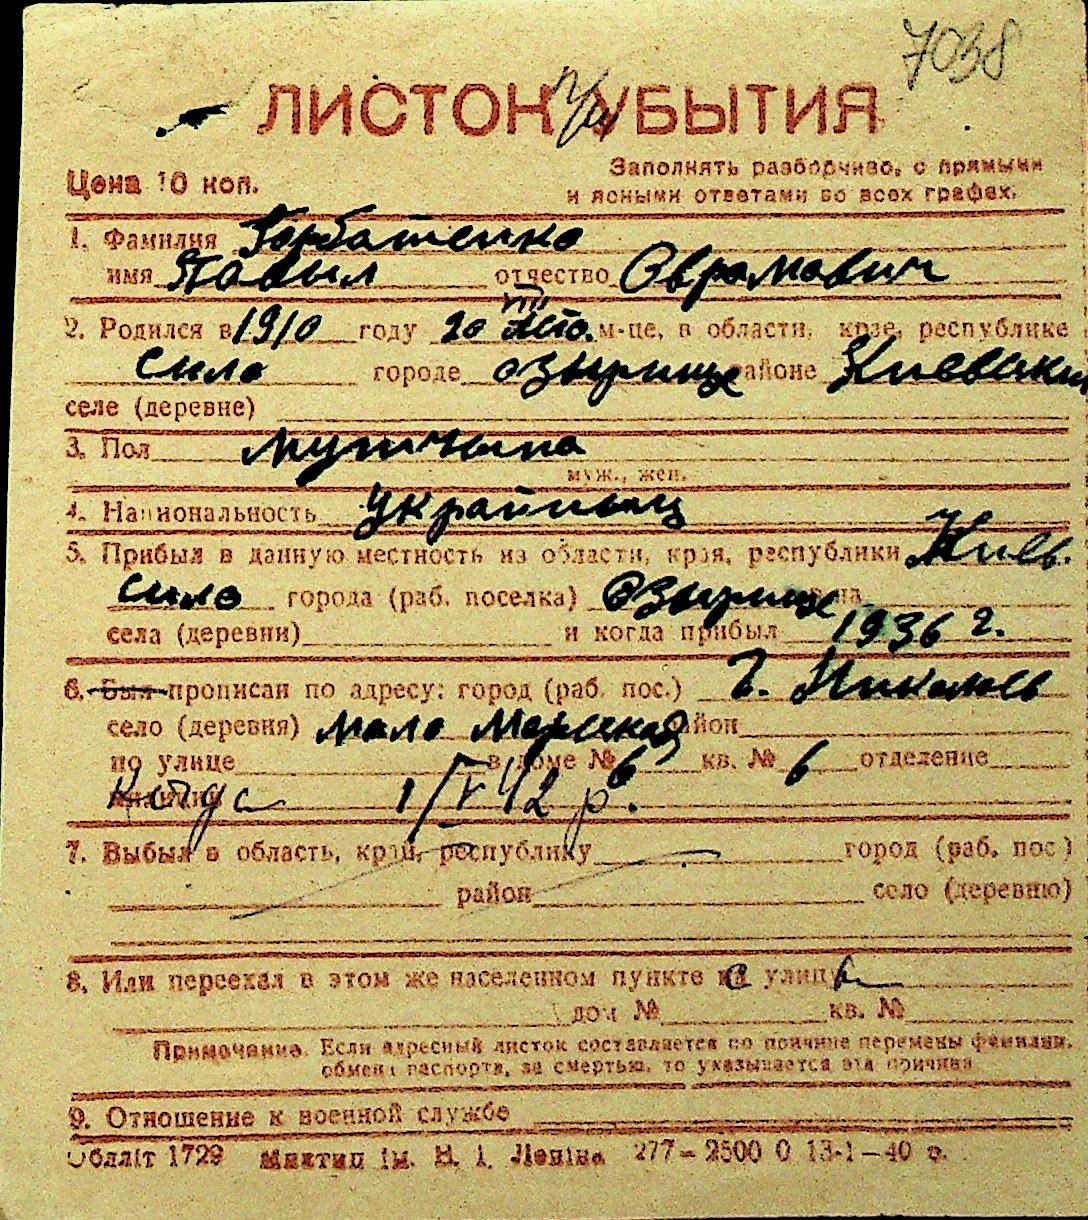 7038
ЛИСТОК УБЫТИЯ
Цена 10 коп.
Заполнять разборчиво, с прямыми
и ясными ответами во всех графах.
1. Фамилия Горбатенко
имя Павыл отчество Оврамович
VIII
2. Родился в 1910 году 20 м-це, в области, крае, республике
Сило городе Озырище районе Киевский
селе (деревне)
3. Пол мушчына
муж., жен.
4. Национальность украйныц
5. Прибыл в данную местность из области, края, республики Киев.
сило города (раб. поселка) Озырище
села (деревни) и когда прибыл 1936 г.
6. Был прописан по адресу: город (раб. пос.) г. Николаев
село (деревня) Мало Морская район
по улице в доме № 6 кв. № 6 отделение
Когда 1/V 42 р.
7. Выбыл в область, край, республику город (раб. пос.)
район село (деревню)
8. Или переехал в этом же населенном пункте с улицы
дом № кв. №
Примечание. Если адресный листок составляется по причине перемены фамилии,
обмена паспорта, за смертью, то указывается эта причина
9. Отношение к военной службе
Обліт 1729 Миктип ім. В. І. Леніна 277-2500 0 13-1-40 р.